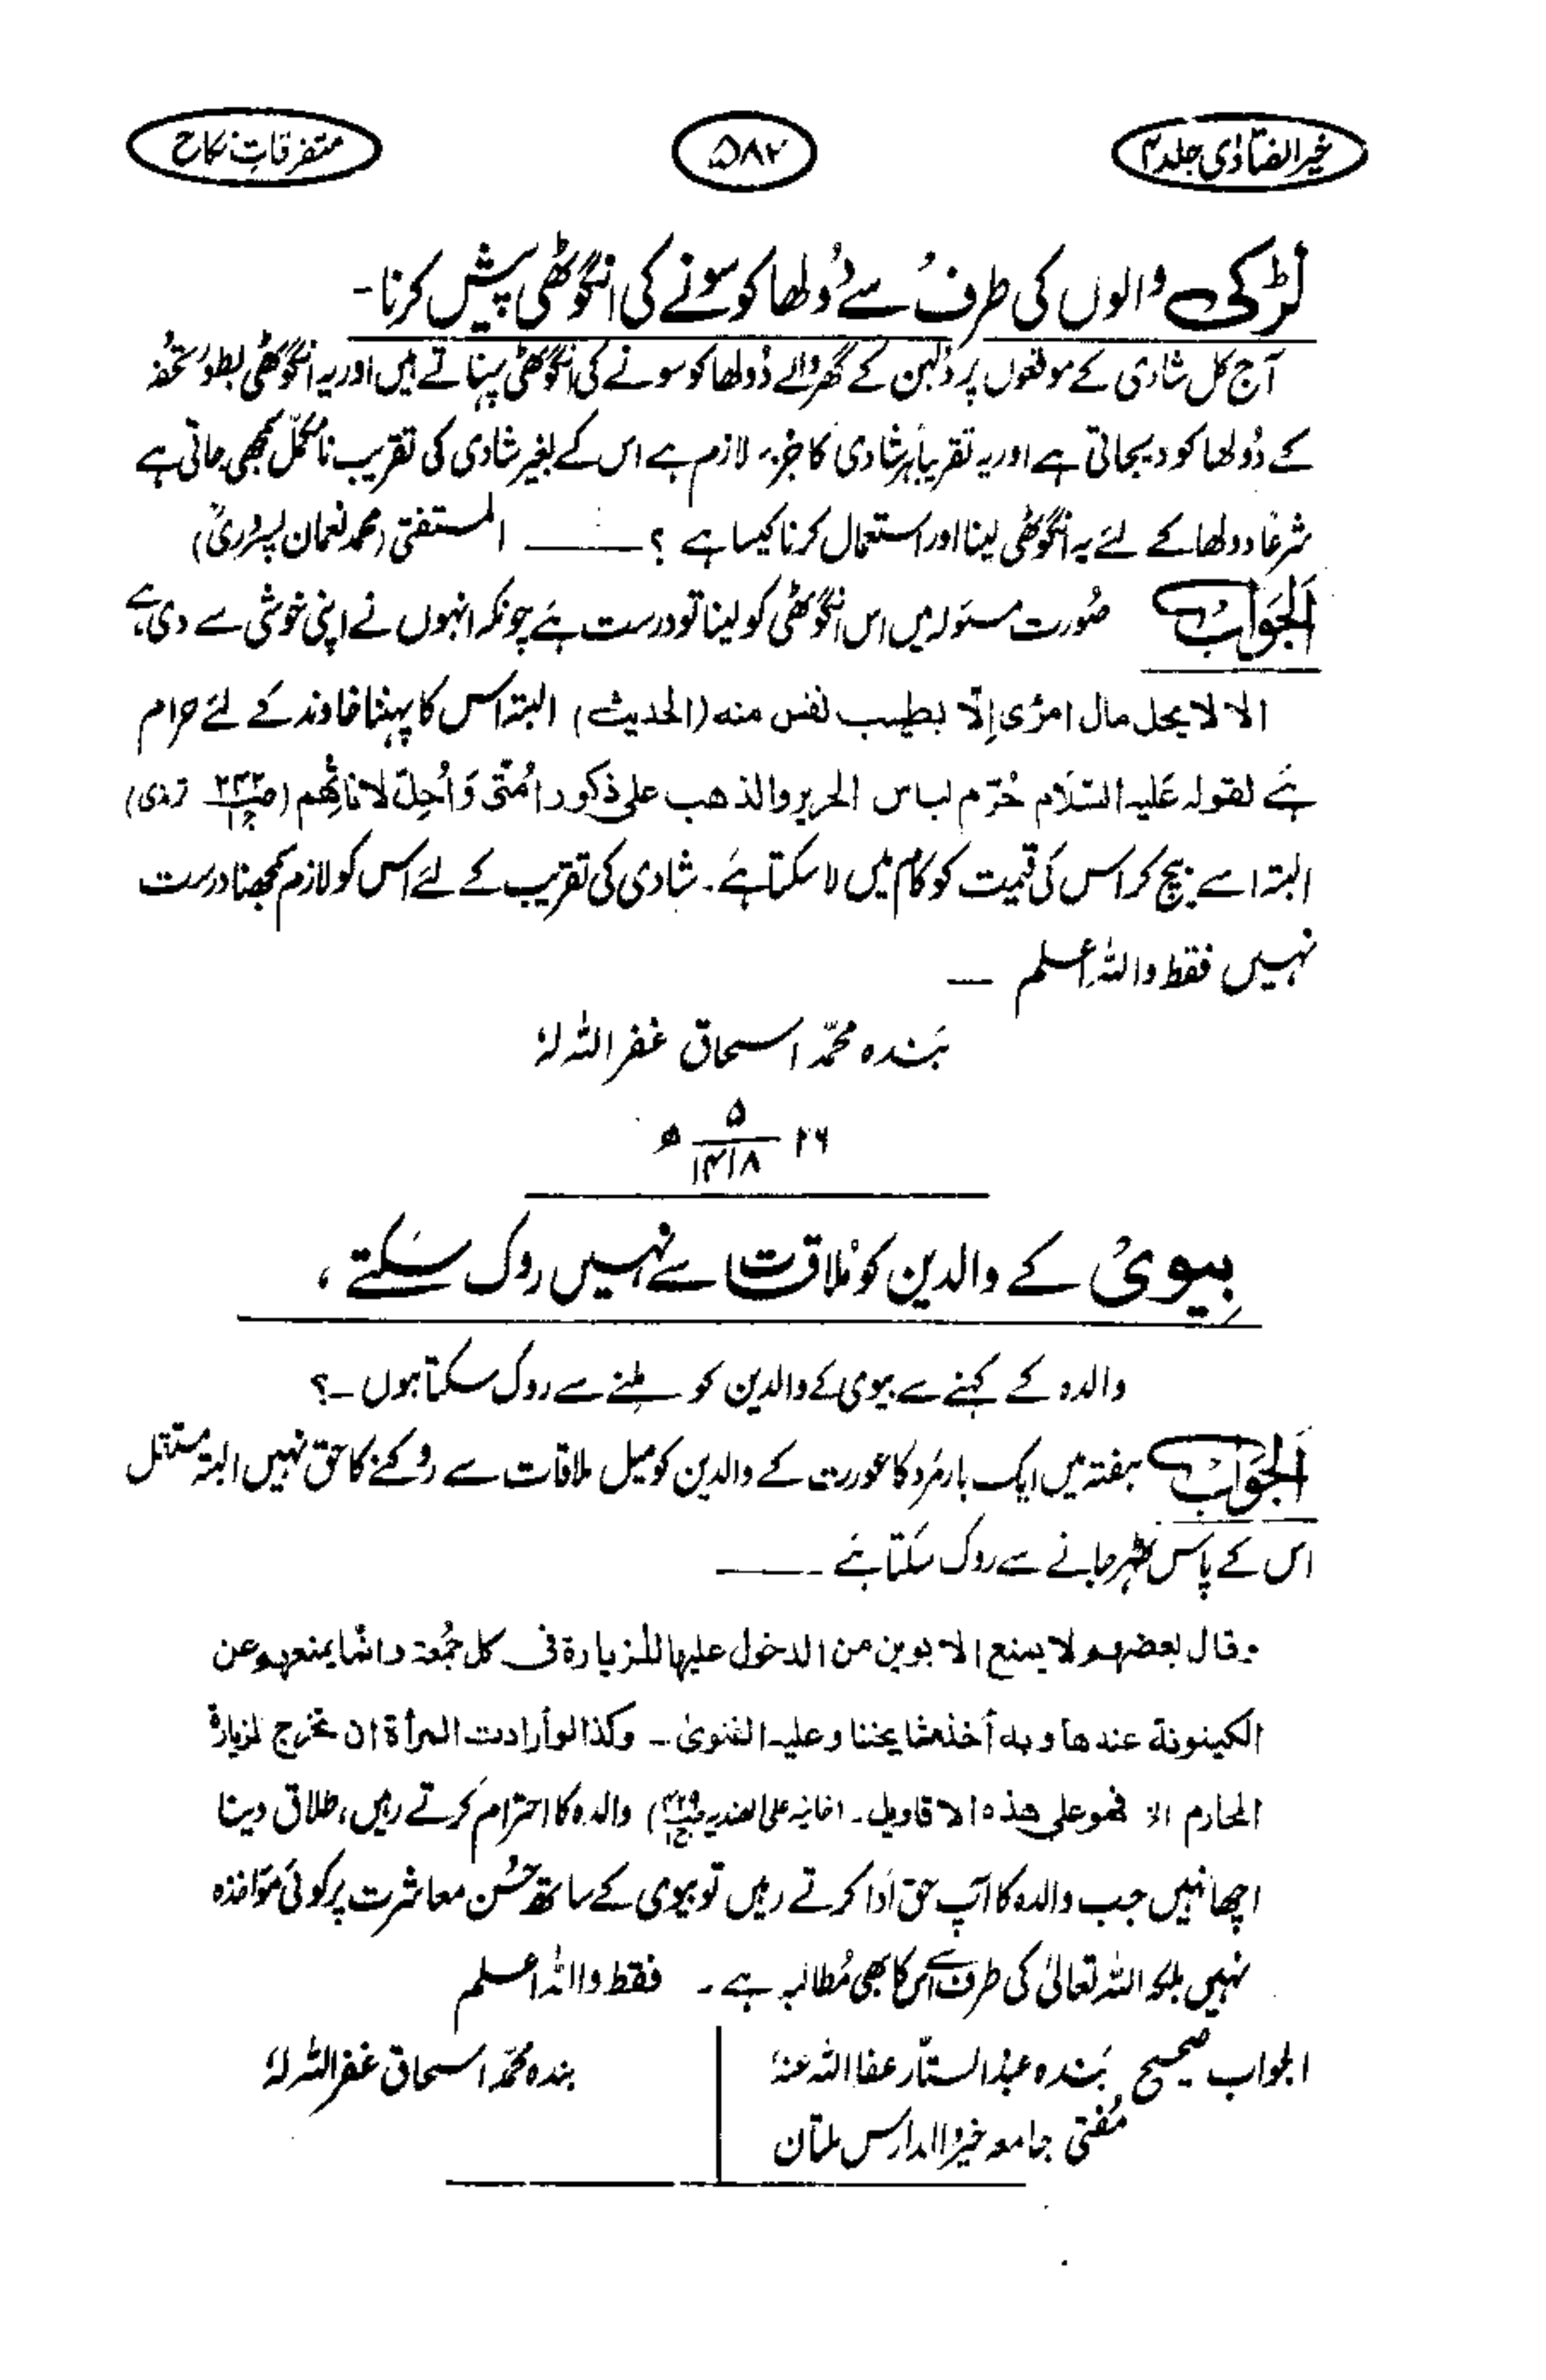 خیر الفتاوٰی جلد ۴
۵۸۲
متفرقاتِ نکاح
لڑکی والوں کی طرف سے دُولھا کو سونے کی انگوٹھی پیش کرنا-
آج کل شادی کے موقعوں پر دُلہن کے گھر والے دُولھا کو سونے کی انگوٹھی پہناتے ہیں اور یہ انگوٹھی بطور تحفہ
کے دُولھا کو دیجاتی ہے اور یہ تقریباً ہر شادی کا جزء لازم ہے اس کے بغیر شادی کی تقریب نامکمّل سمجھی جاتی ہے
شرعًا دولھا کے لئے یہ انگوٹھی لینا اور استعمال کرنا کیسا ہے ؟ ــــ المستفتی (محمد نعمان پسروری)
اَلجَوَاب صُورت مسئولہ میں اس انگوٹھی کو لینا تو درست ہے چونکہ انہوں نے اپنی خوشی سے دی ہے
الا لا یحل مال امرٔی اِلّا بطیب نفس منه (الحدیث) البتہ اس کا پہننا خاوند کے لئے حرام
ہے لقولہ عَلیہ السَّلَام حُرّم لباس الحریر والذهب علی ذکور اُمَّتی وَاُحِلّ لاناثِهم (ص۲۳۲ ج۱ ترمذی)
البتہ اسے بیچ کر اس کی قیمت کو کام میں لا سکتا ہے۔ شادی کی تقریب کے لئے اس کو لازم سمجھنا درست
نہیں فقط واللہ اعلم ــ
بَندہ محمّد اسحاق غفر اللہ لہٗ
۲۶ / ۵ / ۱۴۱۸ ھ
بِیوی کے والدین کو مُلاقت سے نہیں روک سَکتے ،
والدہ کے کہنے سے بیوی کے والدین کو ملنے سے روک سکتا ہوں ـ؟
اَلجَوَاب ہفتہ میں ایک بار مَرد کا عورت کے والدین کو میل ملاقات سے روکنے کا حق نہیں البتہ مستقل
اس کے پاس ٹھہر جانے سے روک سَکتا ہَے ـــ
وقال بعضهم لا یمنع الابوین من الدخول علیها للزیارة فی کل جُمعة وانّما یمنعهم عن
الکینونة عندها وبه أخذ مشایخنا وعلیہ الفتویٰ ـ وکذا لو أرادت المرأة ان تخرج لزیارة
المحارم الخ فهو علی هذه الاقاویل ـ (خانیہ علی الهندیہ ص۴۲۹ ج۱) والدہ کا احترام کَرتے رہیں، طلاق دینا
اچھا نہیں جب والدہ کا آپ حق اَدا کرتے رہیں تو بیوی کے ساتھ حُسنِ معاشرت پر کوئی مؤاخذہ
نہیں بلکہ اللہ تعالیٰ کی طرف سے اس کا بھی مُطالبہ ہے ۔ فقط واللہ اعلم
الجواب صحیح بَندہ عبدُ الستّار عفا اللہ عنہٗ
مُفتی جامعہ خیرُ المدارس ملتان
بندہ محمّد اسحاق غفر اللہ لہٗ